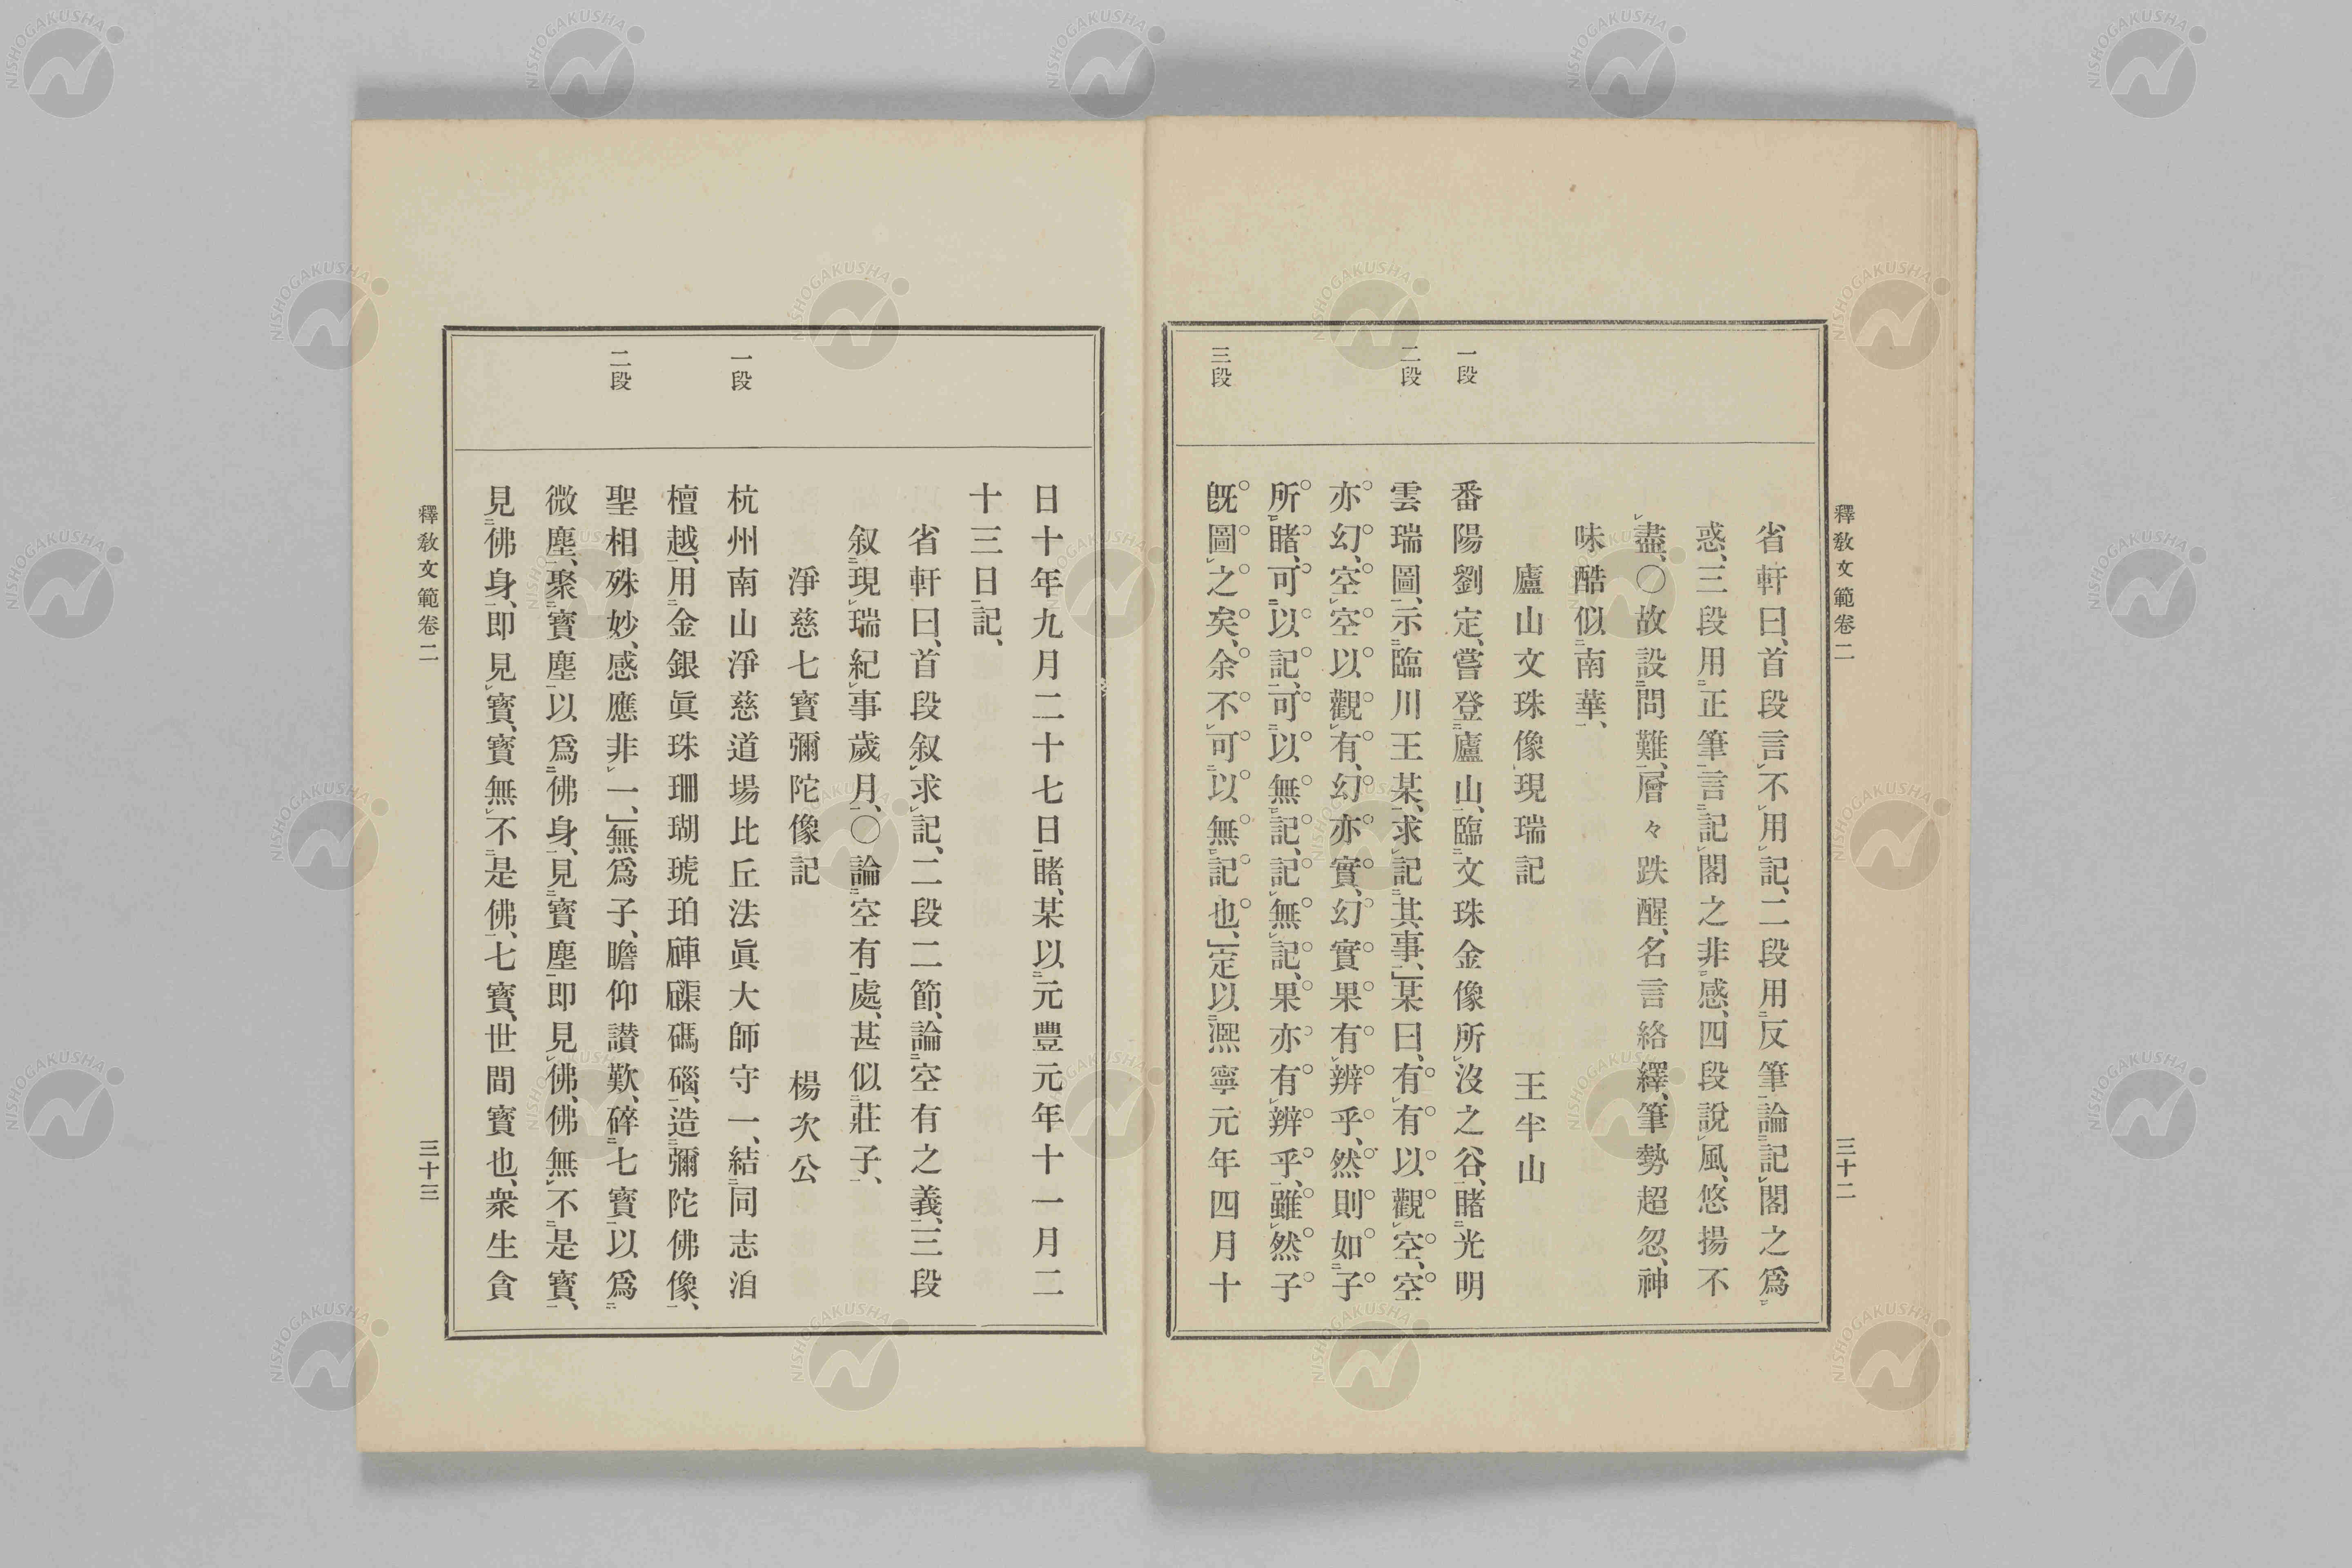 釋敎文範卷二
三十二
省軒曰、首段言不用記、二段用反筆論記閣之爲
惑、三段用正筆言記閣之非感、四段說風、悠揚不
盡、〇故設問難、層々跌醒、名言絡繹、筆勢超忽、神
味酷似南華、
廬山文珠像現瑞記
王半山
一段
番陽劉定、嘗登廬山、臨文珠金像所沒之谷、睹光明
二段
雲瑞圖、示臨川王某、求記其事、」某曰、有有以觀空、空
亦幻、空空以觀有、幻亦實、幻實果有辨乎、然則如子
所睹、可以記、可以無記、記無記、果亦有辨乎、雖然子
三段
旣圖之矣、余不可以無記也、」定以凞寧元年四月十
日十年九月二十七日睹、某以元豐元年十一月二
十三日記、
省軒曰、首段叙求記、二段二節、論空有之義、三段
叙現瑞紀事歲月、〇論空有處、甚似莊子、
淨慈七寶彌陀像記
楊次公
一段
杭州南山淨慈道場比丘法眞大師守一、結同志洎
檀越、用金銀眞珠珊瑚琥珀硨磲碼碯、造彌陀佛像、
二段
聖相殊妙、感應非一、」無爲子、瞻仰讃歎、碎七寶以爲
微塵、聚寶塵以爲佛身、見寶塵即見佛、佛無不是寶、
見佛身、即見寶、寶無不是佛、七寶、世間寶也、衆生貪
釋敎文範卷二
三十三
NISHOGAKUSHA